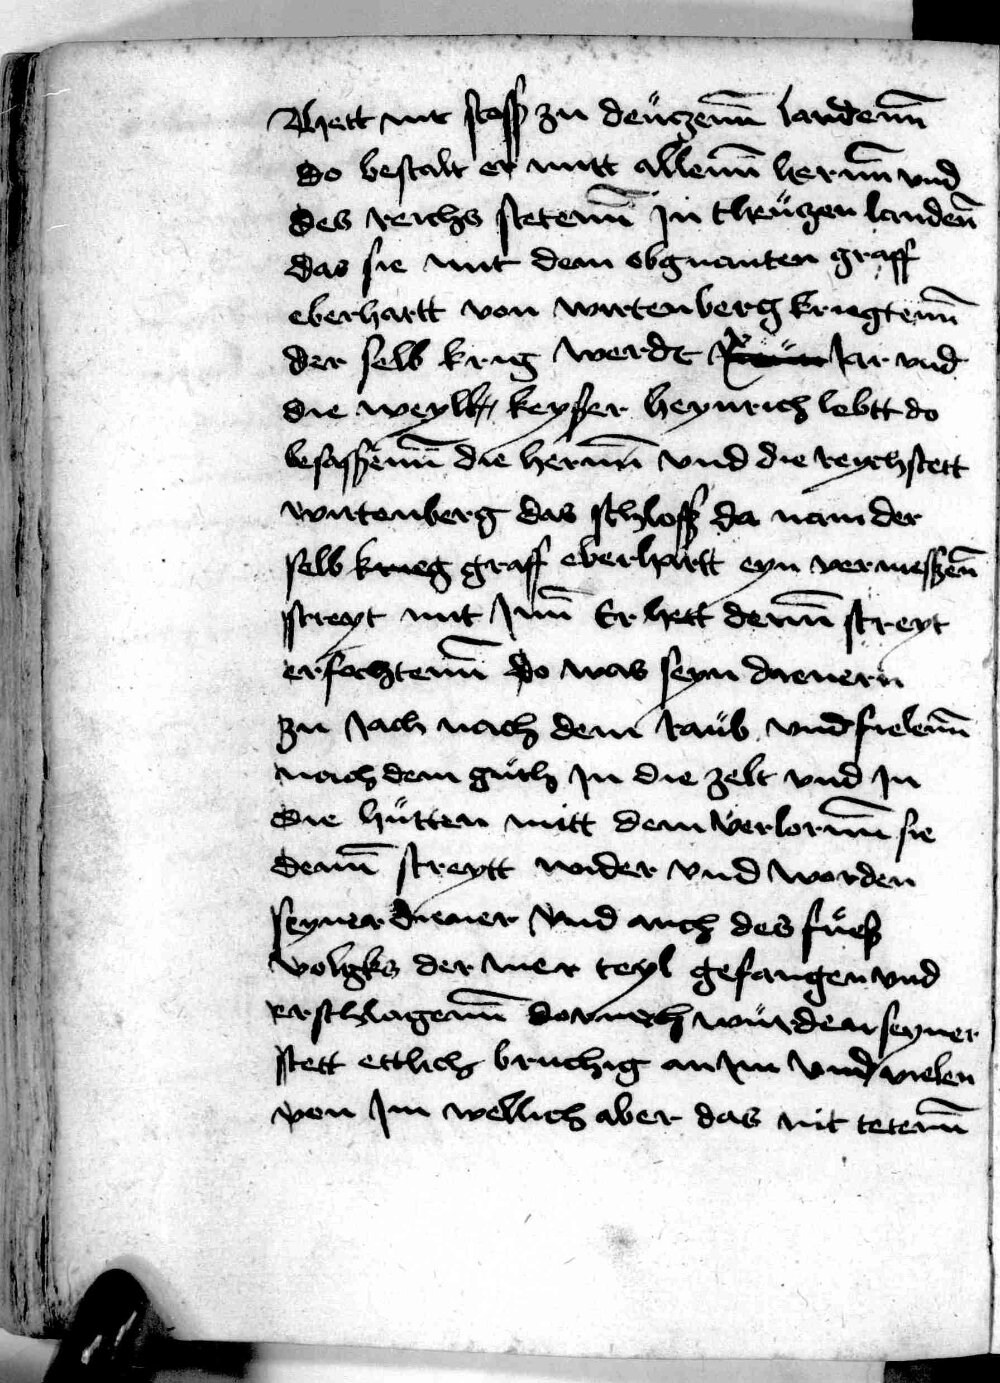 Rhett mit stoss zu deüczenn landenn
do bestalt er mitt allenn hernn vnd
des reichs stetenn jn theüczen landen
das sie mit dem obgnanten graff
eberhartt von wirtenberg kriegtenn
der selb krig werdt Jar vnd
die weyll keysser heynrich lebtt do
besassenn die hernn vnd die reychstett
wirtenberg das schloss da nam der
selb krieg graff eberhartt eyn vermessen
streyt mit Jm Er hett denn streyt
erfochtenn do was seyn dienern
zu jach nach dem raüb vnd fielenn
nach dem güth jn die zelt vnd jn
die hütten mitt dem verlornn sie
denn streytt wider vnd worden
seyner diener vnd auch des füess
volgks der mer teyl gefangen vnd
erschlagenn dornach würden seyner
stett ettlich bruchig an jm vnd vielen
von jm wellich aber das nit tetenn